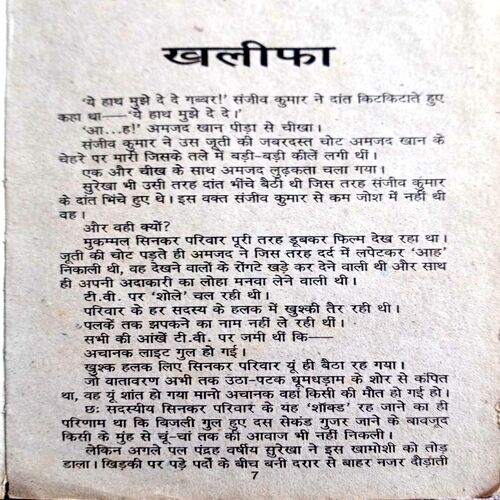 खलीफा
'ये हाथ मुझे दे दे गब्बर!' संजीव कुमार ने दांत किटकिटाते हुए
कहा था—'ये हाथ मुझे दे दे।'
'आ...ह!' अमजद खान पीड़ा से चीखा।
संजीव कुमार ने उस जूती की जबरदस्त चोट अमजद खान के
चेहरे पर मारी जिसके तले में बड़ी-बड़ी कीलें लगी थीं।
एक और चीख के साथ अमजद लुढ़कता चला गया।
सुरेखा भी उसी तरह दांत भींचे बैठी थी जिस तरह संजीव कुमार
के दांत भिंचे हुए थे। इस वक्त संजीव कुमार से कम जोश में नहीं थी
वह।
और वही क्यों?
मुकम्मल सिनकर परिवार पूरी तरह डूबकर फिल्म देख रहा था।
जूती की चोट पड़ते ही अमजद ने जिस तरह दर्द में लपेटकर 'आह'
निकाली थी, वह देखने वालों के रोंगटे खड़े कर देने वाली थी और साथ
ही अपनी अदाकारी का लोहा मनवा लेने वाली थी।
टी.वी. पर 'शोले' चल रही थी।
परिवार के हर सदस्य के हलक में खुश्की तैर रही थी।
पलकें तक झपकने का नाम नहीं ले रही थीं।
सभी की आंखें टी.वी. पर जमी थीं कि—
अचानक लाइट गुल हो गई।
खुश्क हलक लिए सिनकर परिवार यूं ही बैठा रह गया।
जो वातावरण अभी तक उठा-पटक धूमधड़ाम के शोर से कंपित
था, वह यूं शांत हो गया मानो अचानक वहां किसी की मौत हो गई हो।
छः सदस्यीय सिनकर परिवार के यह 'शॉक्ड' रह जाने का ही
परिणाम था कि बिजली गुल हुए दस सेकंड गुजर जाने के बावजूद
किसी के मुंह से चूं-चां तक की आवाज भी नहीं निकली।
लेकिन अगले पल पंद्रह वर्षीय सुरेखा ने इस खामोशी को तोड़
डाला। खिड़की पर पड़े पर्दों के बीच बनी दरार से बाहर नजर दौड़ाती
7